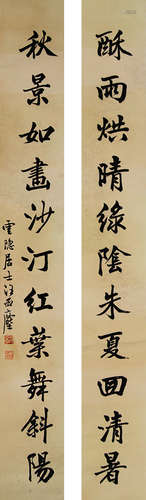 酥雨烘晴綠陰朱夏回清暑
秋景如畫沙汀紅葉舞斜陽
雲隱居士汪